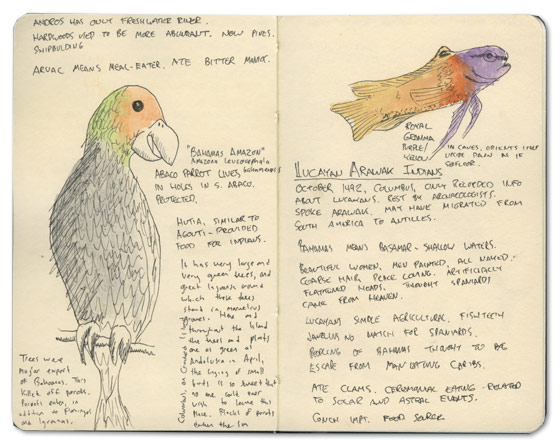 ANDROS HAS ONLY FRESHWATER RIVER.
HARDWOODS USED TO BE MORE ABUNDANT. NOW PINES.
SHIPBUILDING
ARUAC MEANS MEAL-EATER. ATE BITTER MANIOC.
"BAHAMAS AMAZON"
Amazona leucocephala
bahamensis
ABACO PARROT LIVES
IN HOLES IN S. ABACO.
PROTECTED.
HUTIA, SIMILAR TO
AGOUTI - PROVIDED
FOOD FOR INDIANS.
It has very large and
very green trees, and
great lagoons around
which these trees
stand in marvelous
groves. Here and
throughout the Island
the trees and plants
are as green as
Andalusia in April,
the singing of small
birds is so sweet that
no one could ever
wish to leave this
place. Flocks of parrots
darken the sun
Trees were
major export
of Bahamas. This
killed off parrots.
Parrots eaten, in
addition to Flamingos
and Iguanas.
ROYAL
GRAMMA
PURPLE/
YELLOW
IN CAVES, ORIENTS ITSELF
UPSIDE DOWN AS IF
SEAFLOOR.
LUCAYAN ARAWAK INDIANS
OCTOBER 1492, COLUMBUS, ONLY RECORDED INFO
ABOUT LUCAYANS. REST BY ARCHAEOLOGISTS.
SPOKE ARAWAK. MAY HAVE MIGRATED FROM
SOUTH AMERICA TO ANTILLES.
BAHAMAS MEANS BAJAMAR - SHALLOW WATERS.
BEAUTIFUL WOMEN. MEN PAINTED, ALL NAKED.
COARSE HAIR, PEACE LOVING. ARTIFICIALLY
FLATTENED HEADS. THOUGHT SPANIARDS
CAME FROM HEAVEN.
LUCAYANS SIMPLE AGRICULTURAL, FISHTEETH
JAVELINS NO MATCH FOR SPANIARDS.
PEOPLING OF BAHAMAS THOUGHT TO BE
ESCAPE FROM MAN EATING CARIBS.
ATE CLAMS. CEREMONIAL EATING - RELATED
TO SOLAR AND ASTRAL EVENTS.
CONCH IMPT. FOOD SOURCE